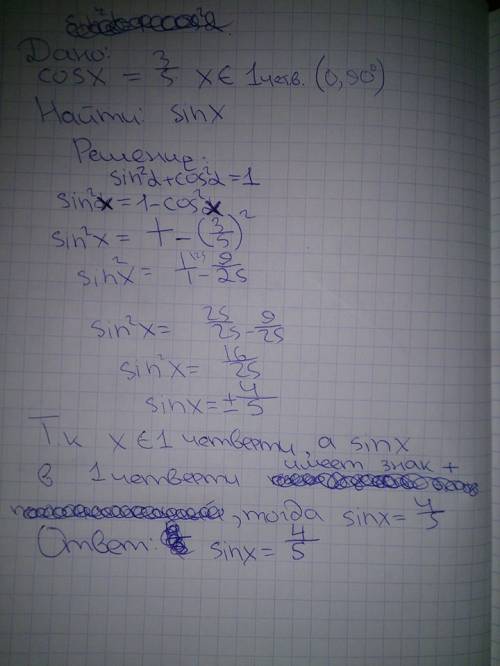 Дано:
cosx = 3/5 x ∈ 1 четв. (0, 90°)
Найти: sinx
Решение:
sin²α + cos²α = 1
sin²x = 1 - cos²x
sin²x = 1 - (3/5)²
sin²x = 1/1 - 9/25
sin²x = 25/25 - 9/25
sin²x = 16/25
sinx = ± 4/5
Т.к x ∈ 1 четверти, а sinx
в 1 четверти имеет знак +
, тогда sinx = 4/5
Ответ: sinx = 4/5